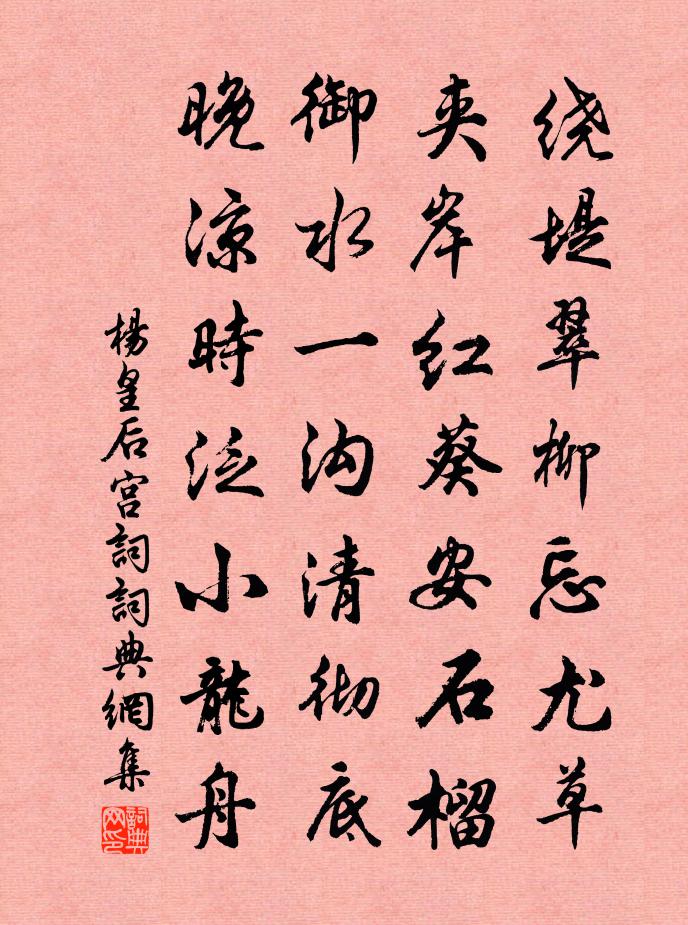 绕堤翠柳忘尤草
夹岸红葵安石榴
御水一沟清彻底
晚凉時泛小龍舟
楊皇后宫詞詞典網集
詞典网印